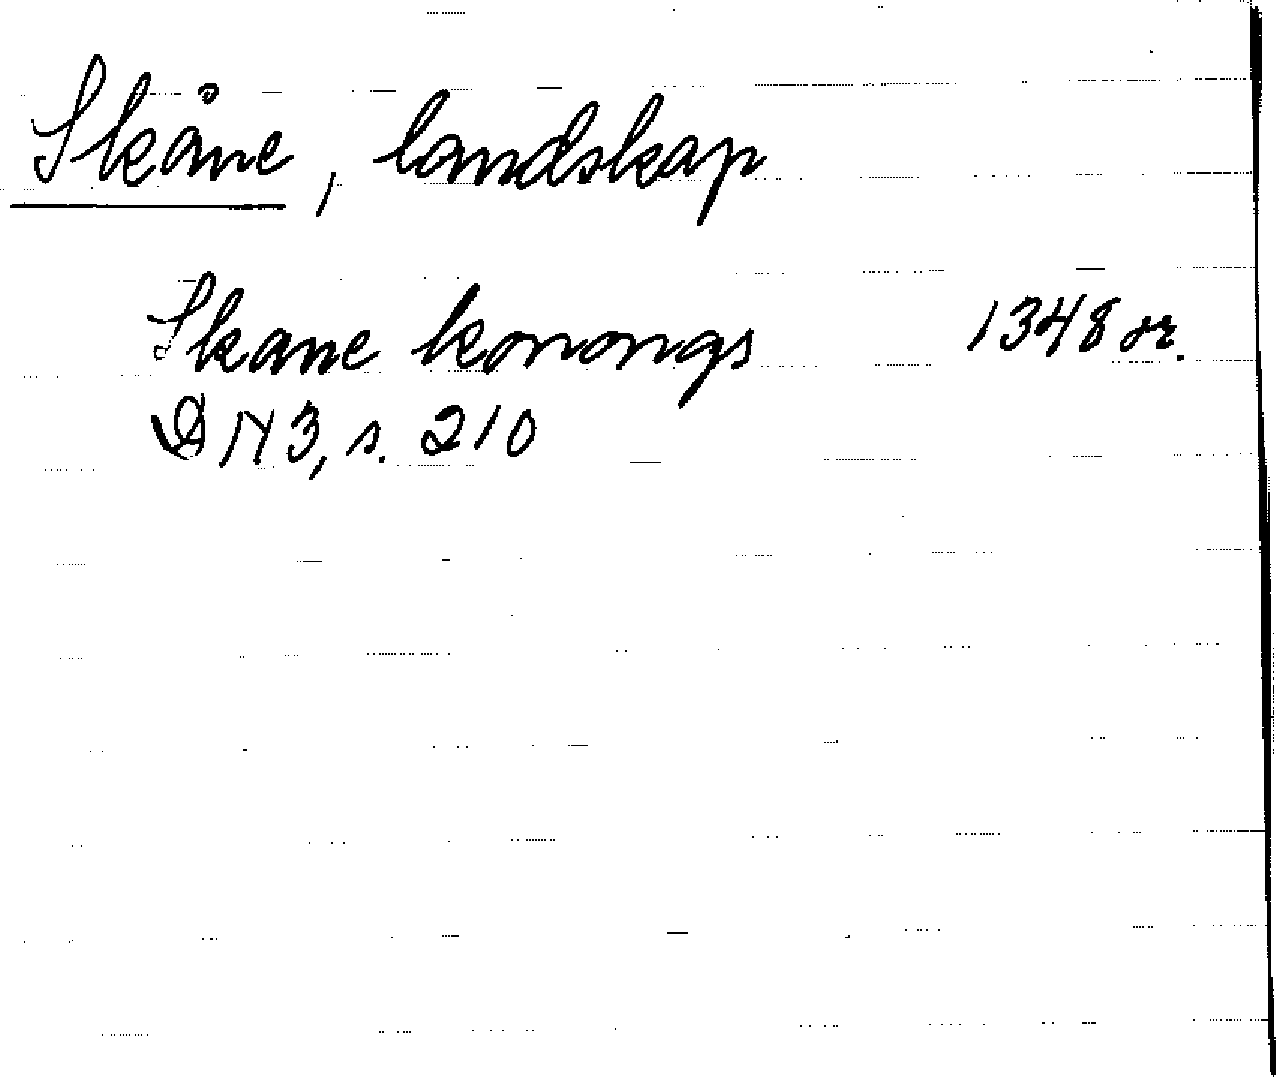 Skåne, landskap
Skane konongs 1348 or.
DN 3, s. 210